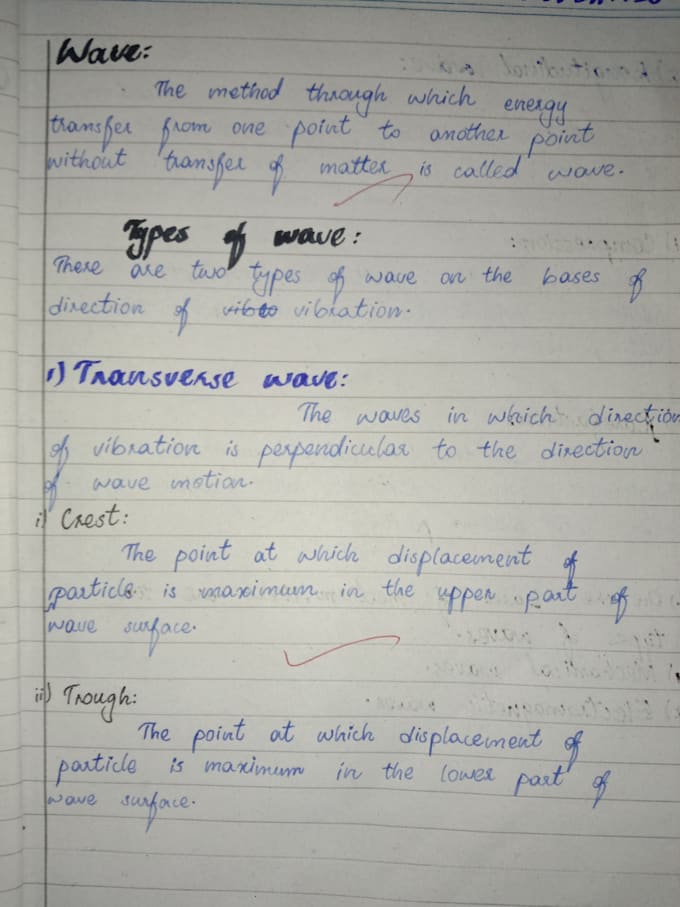 Wave:
The method through which energy
transfer from one point to another point
without transfer of matter is called wave.
Types of wave:
There are two types of wave on the bases of
direction of vibto vibration.
1) Transverse wave:
The waves in which direction
of vibration is perpendicular to the direction
of wave motion.
i) Crest:
The point at which displacement of
particle is maximum in the upper part of
wave surface.
ii) Trough:
The point at which displacement of
particle is maximum in the lower part of
wave surface.